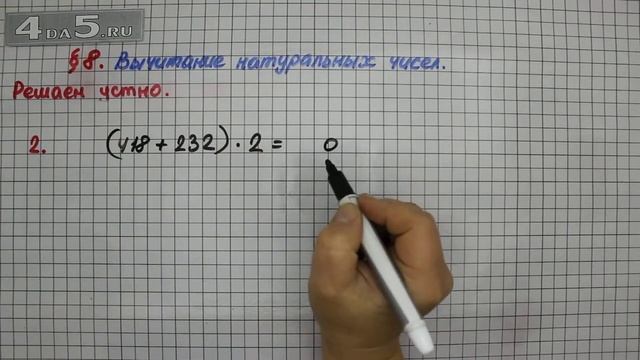 4DA5.RU
§8. Вычитание натуральных чисел.
Решаем устно.
2. (418 + 232) · 2 = 0